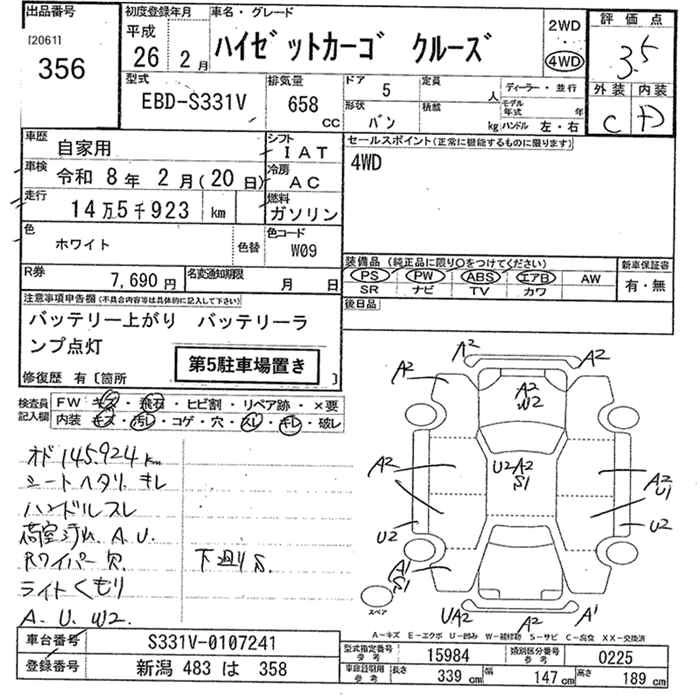 出品番号
[20611
356
初度登録年月
平成
26 2月
車名・グレード
ハイゼットカーゴ クルーズ
2WD
・
4WD
評価点
3.5
外装 内装
C D
型式
EBD-S331V
排気量
658
cc
ドア 5
形状 バン
定員 人
積載 kg
ディーラー・並行
モデル年式 年
ハンドル 左・右
車歴 自家用
シフト IAT
車検 令和 8年 2月(20日)
冷房 AC
走行 14万5千923 km
燃料 ガソリン
色 ホワイト 色替
色コード W09
セールスポイント(正常に機能するものに限ります)
4WD
R券 7,690円
名変通知期限 月 日
装備品(純正品に限り〇をつけてください)
PS PW ABS エアB AW
SR ナビ TV カワ
新車保証書
有・無
後日品
注意事項申告欄(不具合内容等は具体的に記入して下さい)
バッテリー上がり バッテリーラ
ンプ点灯
第5駐車場置き
修復歴 有〔箇所
検査員記入欄
FW キズ・飛石・ヒビ割・リペア跡・×要
内装 キズ・汚レ・コゲ・穴・スレ・キレ・破レ
オド 145.924 km
シートヘタリ キレ
ハンドルスレ
荷室汚れ A.U.
Rワイパー欠
下廻りS
ライトくもり
A.U.W2
A2 A2
A2
A2
W2
A2
U2A2
S1
A2
U1
U2 U2
A1
S1
スペア
UA2 A2 A1
A-キズ E-エクボ U-凹み W-補修跡 S-サビ C-腐食 XX-交換済
車台番号 S331V-0107241
登録番号 新潟 483 は 358
型式指定番号 参考 15984
類別区分番号 参考 0225
車庫証明用 参考 長さ 339cm 幅 147cm 高さ 189cm